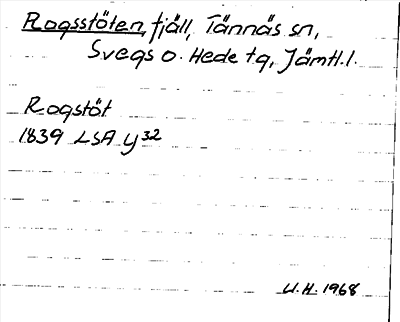 Rogsstöten, fjäll, Tännäs sn,
Svegs o. Hede tg, Jämtl. l.
Rogstöt
1839 LSA y 32
U.H. 1968